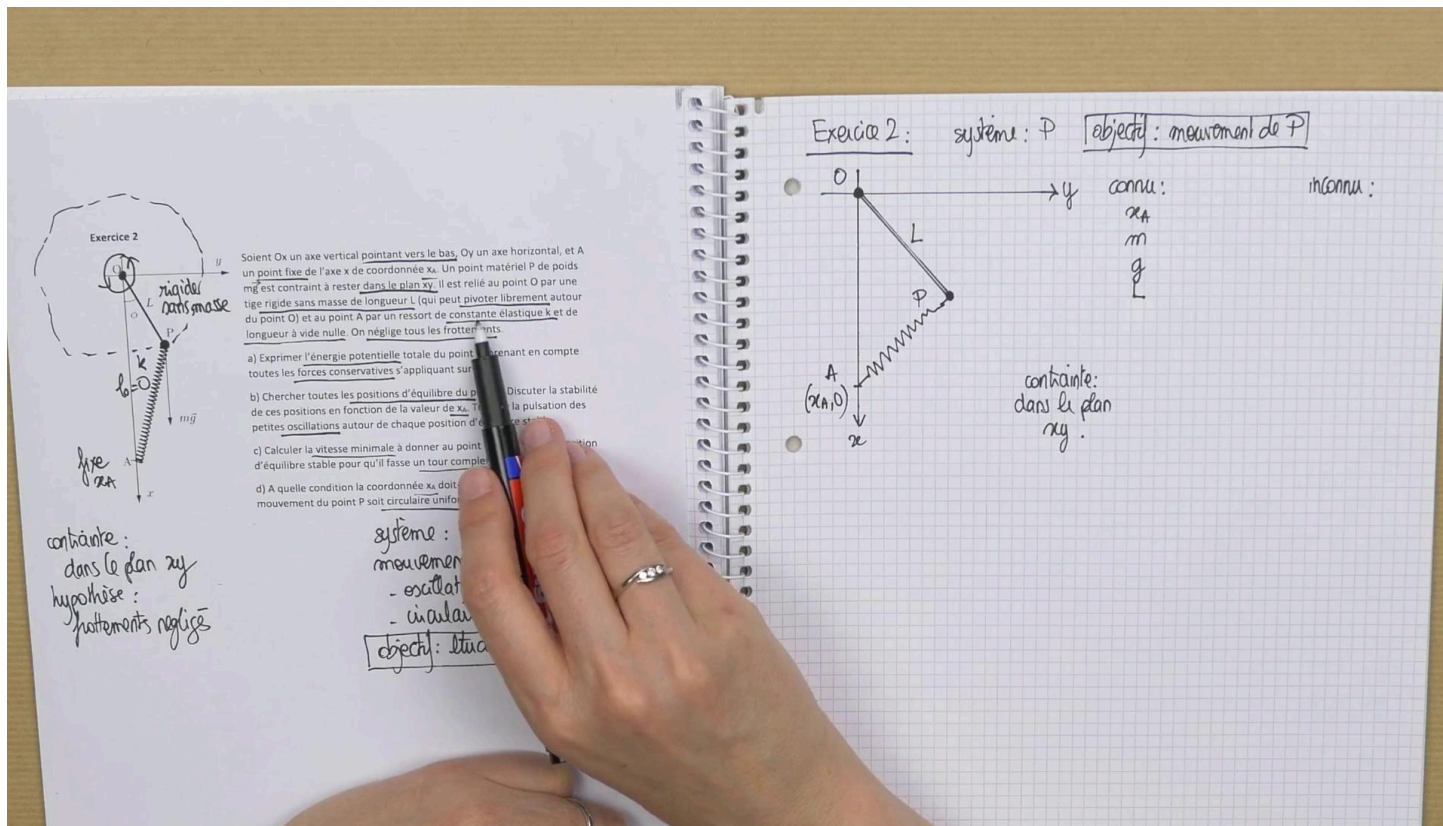 Exercice 2
O
y
rigide
sans masse
L
O
P
k
l₀=0
mg⃗
fixe
xA
A
x
Soient Ox un axe vertical pointant vers le bas, Oy un axe horizontal, et A
un point fixe de l'axe x de coordonnée xA. Un point matériel P de poids
mg⃗ est contraint à rester dans le plan xy. Il est relié au point O par une
tige rigide sans masse de longueur L (qui peut pivoter librement autour
du point O) et au point A par un ressort de constante élastique k et de
longueur à vide nulle. On néglige tous les frottements.
a) Exprimer l'énergie potentielle totale du point enant en compte
toutes les forces conservatives s'appliquant sur
b) Chercher toutes les positions d'équilibre du p Discuter la stabilité
de ces positions en fonction de la valeur de xA. T la pulsation des
petites oscillations autour de chaque position d'é
c) Calculer la vitesse minimale à donner au point tion
d'équilibre stable pour qu'il fasse un tour comple
d) A quelle condition la coordonnée xA doit
mouvement du point P soit circulaire unifo
contrainte :
dans le plan xy
hypothèse :
frottements négligés
système :
mouvemen
- oscillat
- circulai
objectif : étud
Exercice 2 :
système : P
objectif : mouvement de P
O
y
L
P
A
(xA,0)
x
connu :
xA
m
g
L
inconnu :
contrainte :
dans le plan
xy .